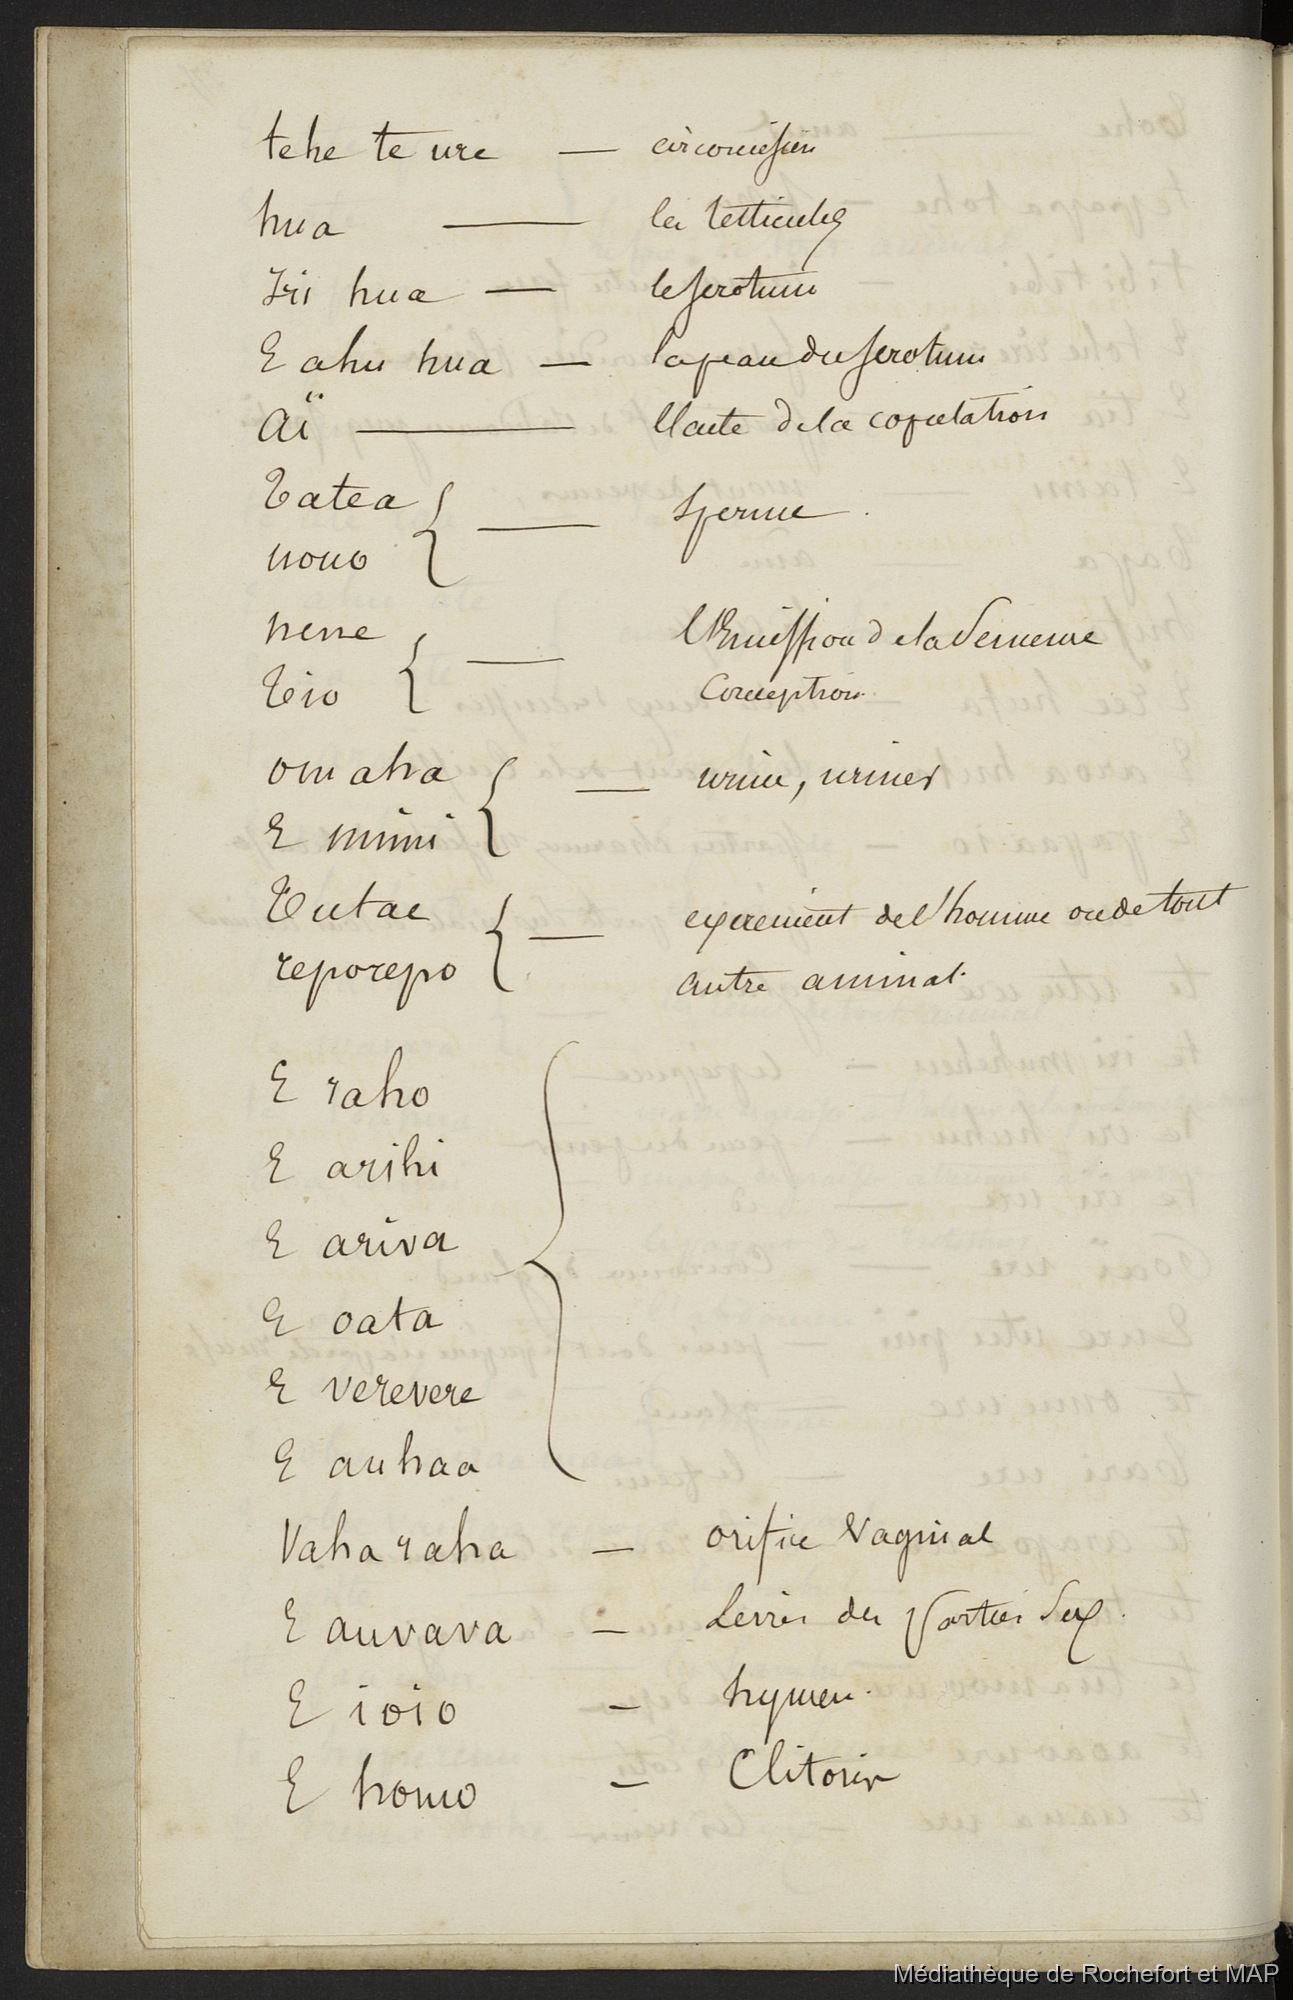 tehe te ure — circoncision
hua — les testicules
Iri hua — le scrotum
E ahu hua — la peau du scrotum
Aï — l'acte de la copulation
Tatea
nono { — Sperme.
hene { — l'Emission de la Semence
Tio Conception.
omaha { — urine, uriner
E mimi
Tutae { — excrement de l'homme ou de tout
reporepo autre animal.
E raho
E arihi
E ariva
E oata
E verevere
E auhaa
Vaha raha — orifice Vaginal
E auvava — Levres des Parties Sex.
E ioio — hymen.
E homo — Clitoris
Médiathèque de Rochefort et MAP